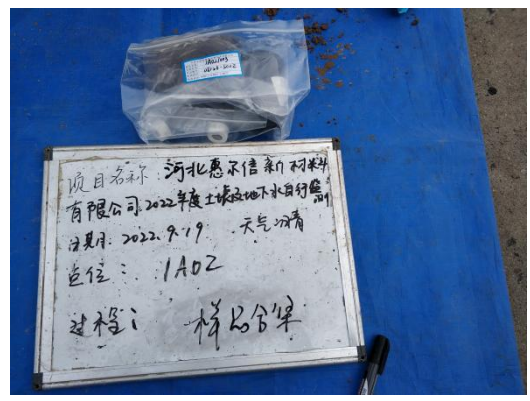 项目名称:河北惠尔信新材料
有限公司2022年度土壤及地下水自行监测
日期:2022.9.19 天气:晴
点位:1A02
过程:样品合集